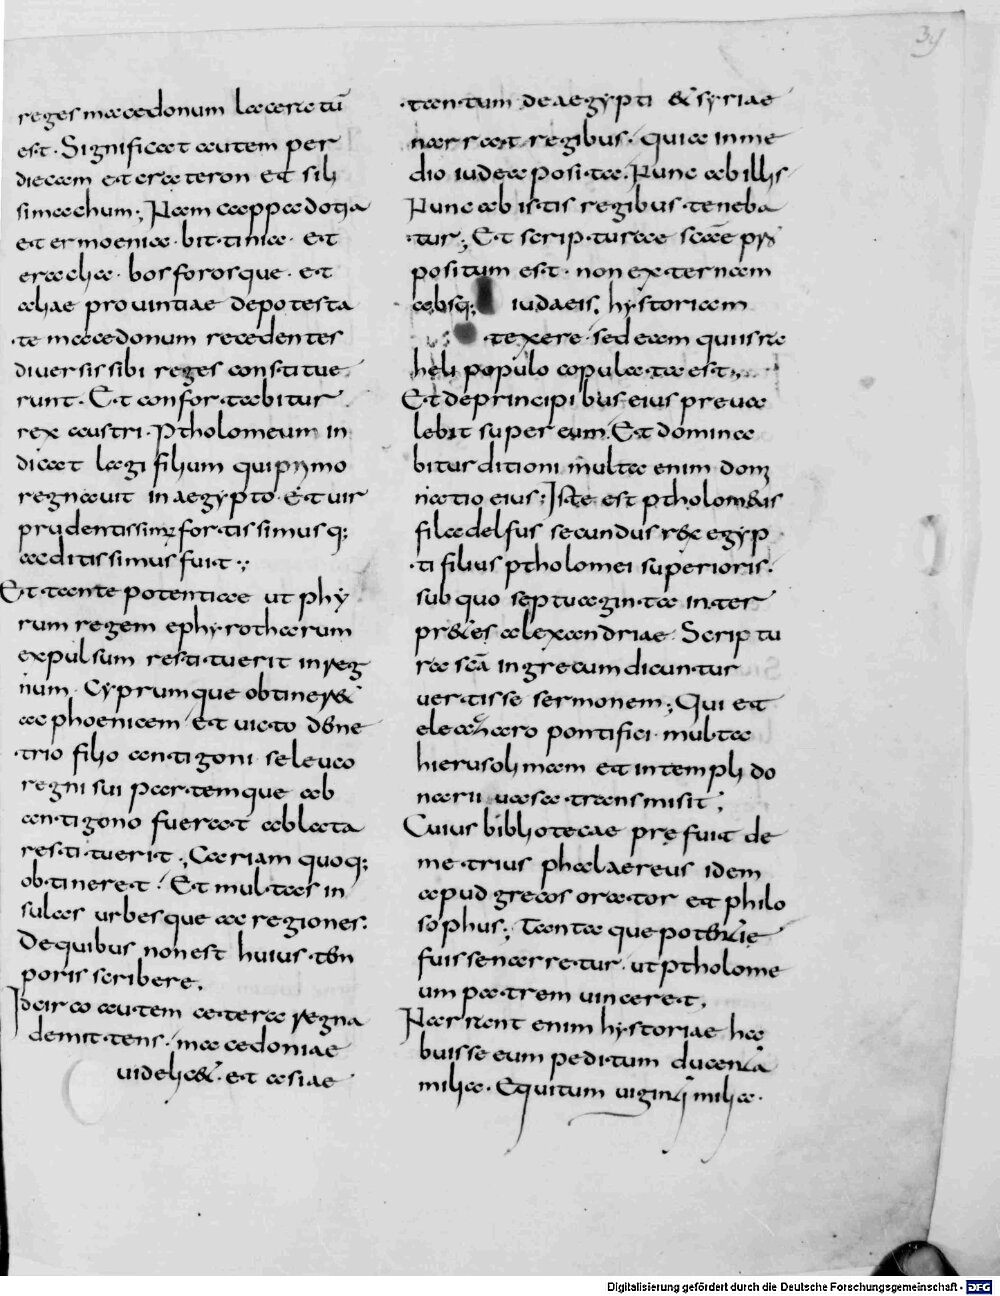 39
reges macedonum laceratū
est. Significat autem per
diccam et crateron et sili
simachum; Nam cappadotia
et ermoenia. bittinia. et
eraclia. bosforosque. et
aliae prouintiae depotesta
te macedonum recedentes
diuersis sibi reges constitue
runt. Et confortabitur
rex austri. Ptholomeum in
dicat lagi filium qui primo
regnauit in aegypto. Et uir
prudentissimus fortissimusq;
ac ditissimus fuit.;
Et tante potentiae ut phy
rum regem ephyrotharum
expulsum restituerit in reg
num. Cyprumque obtineret
ac phoenicem et uicto deme
trio filio antigoni seleuco
regni sui partemque ab
antigono fuerat ablata
restituerit; Cariam quoq;
obtineret. Et multas in
sulas urbesque ac regiones.
De quibus non est huius tem
poris scribere.
Idcirco autem cetera regna
demittens. macedoniae
uidelicet. et asiae
tantum de aegypti & syriae
narrat regibus. Quia in me
dio iudea posita. Nunc ab illis
Nunc ab istis regibus teneba
tur; Et scripturae scāe p
positum est. non externam
absq; iudaeis. hystoriam
texere. sed eam qui isra
heli populo copulata est;
Et de principibus eius preua
lebit super eum. Et domina
bitur ditioni multa enim domi
natio eius; Iste est ptholomeus
filadelfus secundus rex egyp
ti filius ptholomei superioris.
sub quo septuaginta inter
pretes alexandriae. Scriptu
ra scā in grecum dicuntur
uertisse sermonem; Qui et
eleazaro pontifici. multa
hierusolimam et in templi do
narii uasa transmisit;
Cuius bibliotecae prefuit de
metrius phalaereus idem
apud grecos orator et philo
sophus; Tantaque potentie
fuisse narretur. ut ptholome
um patrem uinceret.
Narrant enim hystoriae ha
buisse eum peditum ducenta
milia. Equitum uiginti milia.
Digitalisierung gefördert durch die Deutsche Forschungsgemeinschaft - DFG